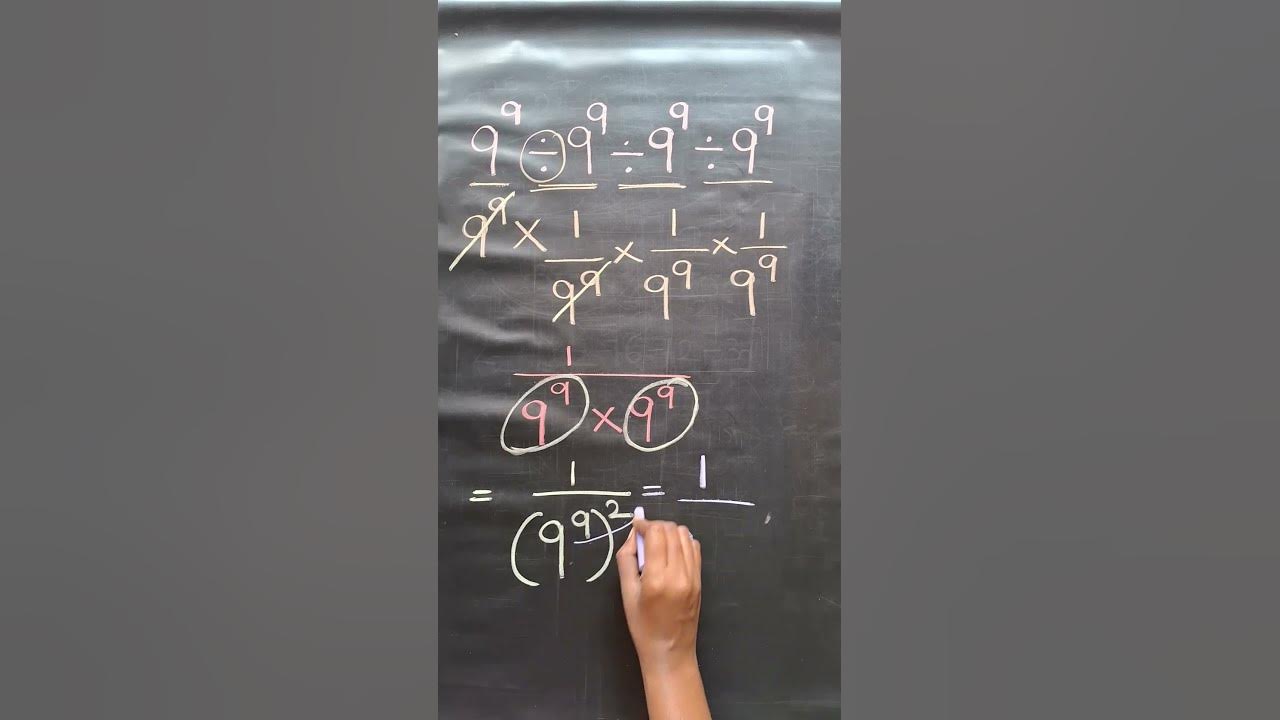 9⁹ ÷ 9⁹ ÷ 9⁹ ÷ 9⁹
9⁹ × 1/9⁹ × 1/9⁹ × 1/9⁹
1/(9⁹ × 9⁹)
= 1/(9⁹)² = 1/